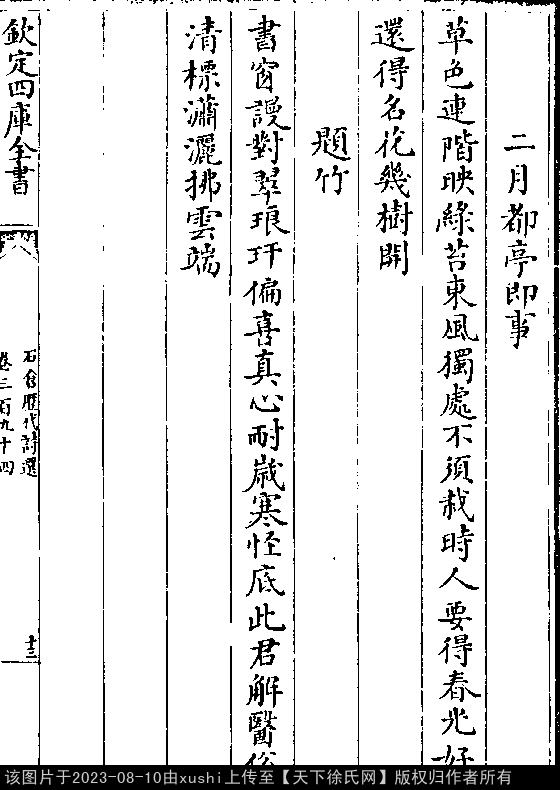 二月都亭即事
草色連階映綠苔東風獨處不須栽時人要得春光好
還得名花幾樹開
題竹
書窗謾對翠琅玕偏喜真心耐歲寒怪底此君解醫俗
清標瀟灑拂雲端
欽定四庫全書
石倉歷代詩選
卷三百九十四
十三
该图片于2023-08-10由xushi上传至【天下徐氏网】版权归作者所有